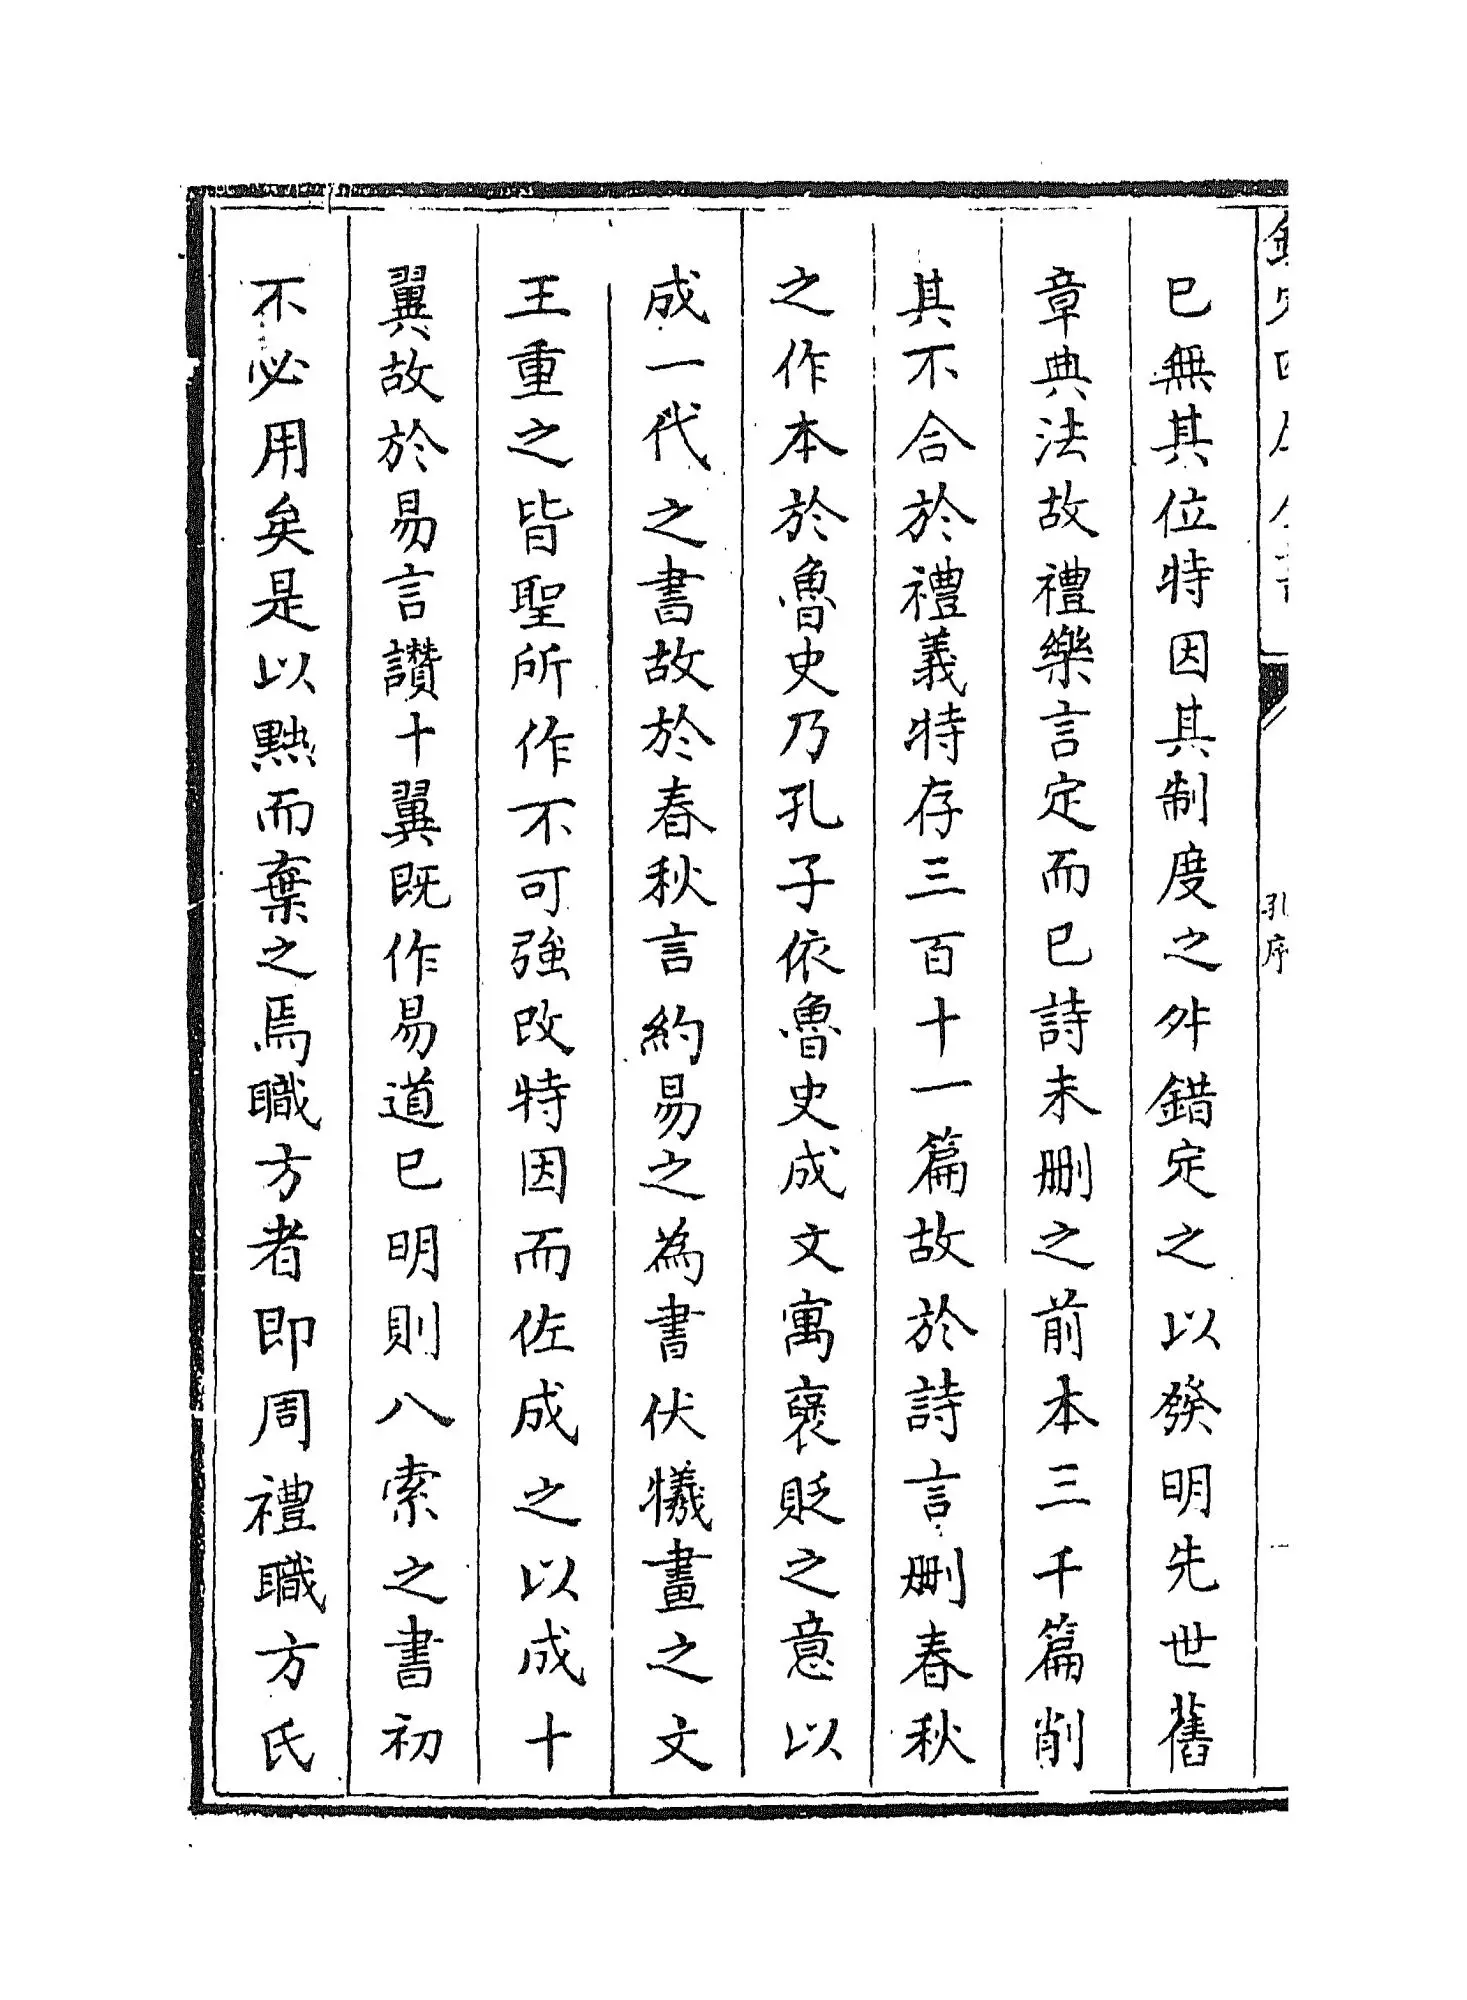 已無其位特因其制度之外錯定之以發明先世舊
章典法故禮樂言定而已詩未刪之前本三千篇削
其不合於禮義特存三百十一篇故於詩言刪春秋
之作本於魯史乃孔子依魯史成文寓褒貶之意以
成一代之書故於春秋言約易之為書伏犧畫之文
王重之皆聖所作不可強改特因而佐成之以成十
翼故於易言讚十翼既作易道已明則八索之書初
不必用矣是以㸃而棄之焉職方者即周禮職方氏
孔序